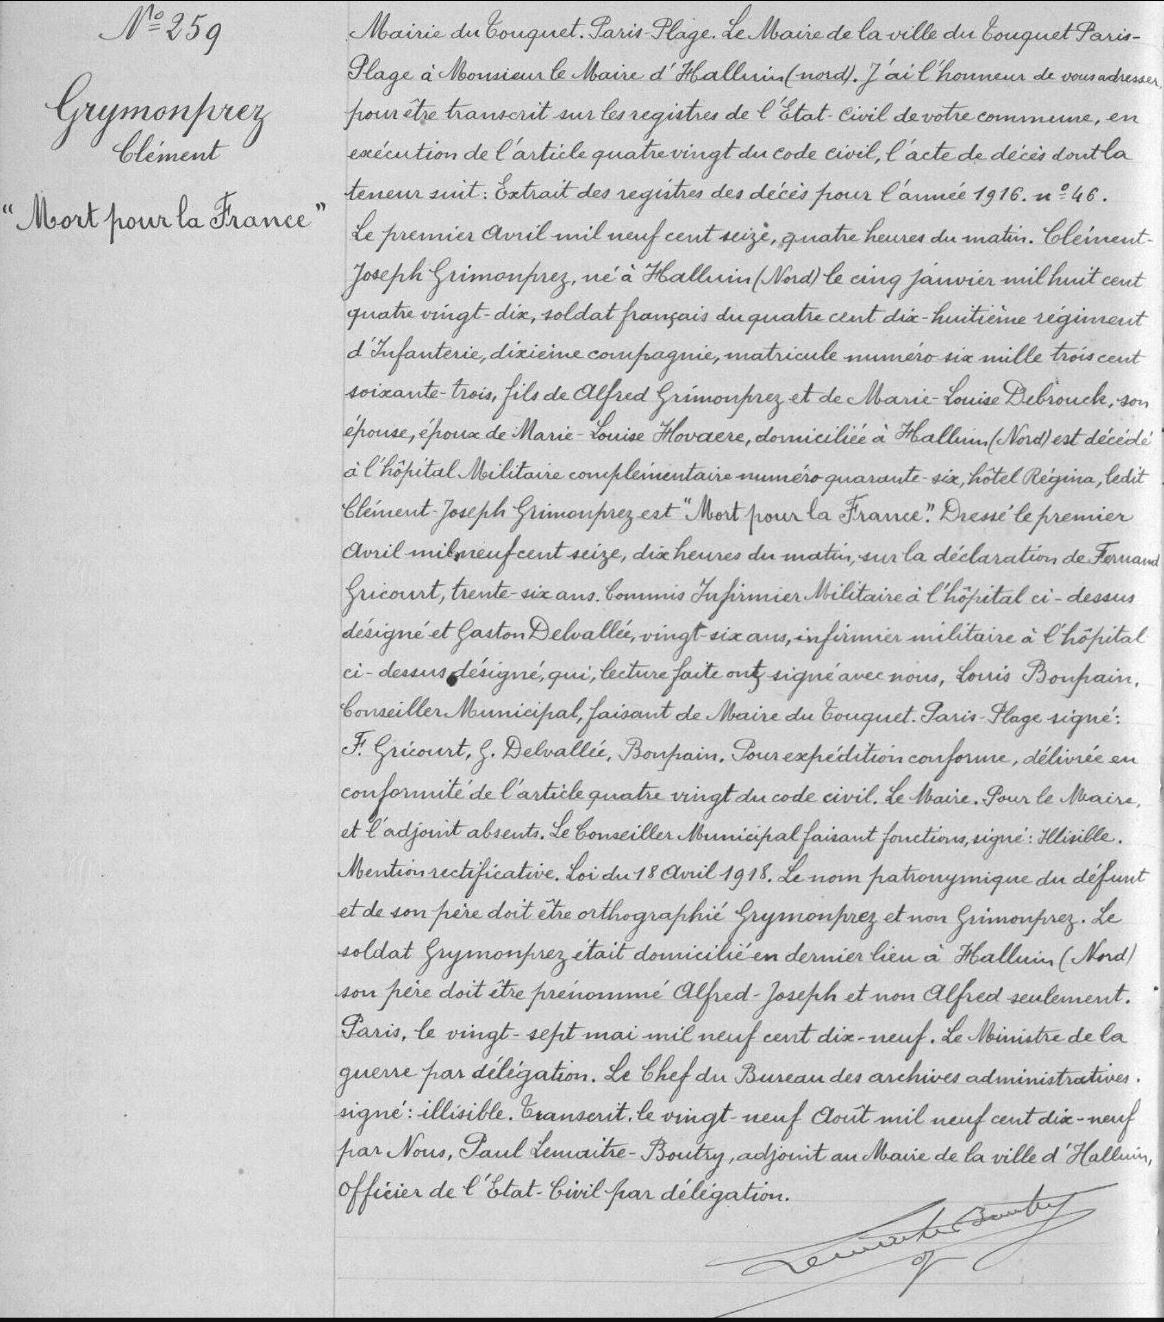 Nº 259
Grymonprez
Clément
"Mort pour la France"
Mairie du Touquet. Paris-Plage. Le Maire de la ville du Touquet Paris-
Plage à Monsieur le Maire d'Halluin (nord). J'ai l'honneur de vous adresser,
pour être transcrit sur les registres de l'Etat-Civil de votre commune, en
exécution de l'article quatre vingt du code civil, l'acte de décès dont la
teneur suit : Extrait des registres des décès pour l'année 1916. nº 46.
Le premier Avril mil neuf cent seize, quatre heures du matin. Clément-
Joseph Grimonprez, né à Halluin (Nord) le cinq janvier mil huit cent
quatre vingt-dix, soldat français du quatre cent dix-huitième régiment
d'Infanterie, dixième compagnie, matricule numéro six mille trois cent
soixante-trois, fils de Alfred Grimonprez et de Marie-Louise Debrouck, son
épouse, époux de Marie-Louise Hovaere, domiciliée à Halluin (Nord) est décédé
à l'hôpital Militaire complémentaire numéro quarante-six, hôtel Régina, ledit
Clément-Joseph Grimonprez est "Mort pour la France". Dressé le premier
Avril mil neuf cent seize, dix heures du matin, sur la déclaration de Fernand
Gricourt, trente-six ans. Commis Infirmier Militaire à l'hôpital ci-dessus
désigné et Gaston Delvallée, vingt-six ans, infirmier militaire à l'hôpital
ci-dessus désigné, qui, lecture faite ont signé avec nous, Louis Boupain,
Conseiller Municipal, faisant de Maire du Touquet. Paris-Plage signé :
F. Gricourt, G. Delvallée, Boupain. Pour expédition conforme, délivrée en
conformité de l'article quatre vingt du code civil. Le Maire. Pour le Maire,
et l'adjoint absents. Le Conseiller Municipal faisant fonctions, signé : Illisible.
Mention rectificative. Loi du 18 Avril 1918. Le nom patronymique du défunt
et de son père doit être orthographié Grymonprez et non Grimonprez. Le
soldat Grymonprez était domicilié en dernier lieu à Halluin (Nord)
son père doit être prénommé Alfred-Joseph et non Alfred seulement.
Paris, le vingt-sept mai mil neuf cent dix-neuf. Le Ministre de la
guerre par délégation. Le Chef du Bureau des archives administratives.
signé : illisible. Transcrit, le vingt-neuf Août mil neuf cent dix-neuf
par Nous, Paul Lemaitre-Boutry, adjoint au Maire de la ville d'Halluin,
Officier de l'Etat-Civil par délégation.
Lemaitre Boutry